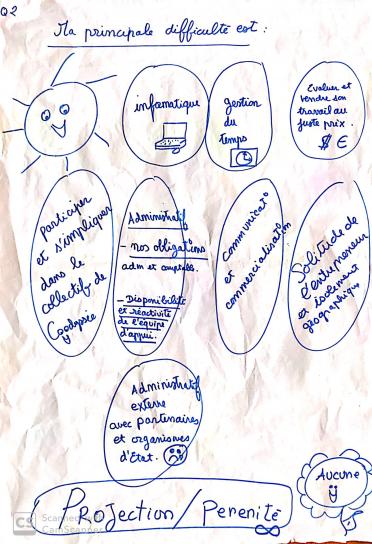 Q2
Ma principale difficulté est :
informatique
gestion
du
temps
Evaluer et
vendre son
travail au
juste prix.
$ €
participer
et s'impliquer
dans le
collectif de
Coodyssée
Administratif
- nos obligations
adm et comptable.
- Disponibilité
et réactivité
de l'équipe
d'appui.
communicat°
et
commercialisation
Solitude de
l'entrepreneur
et isolement
géographique
Administratif
externe
avec partenaires
et organismes
d'État.
Aucune
PROJECTION / PERENITÉ
CS Scanned
CamScanner